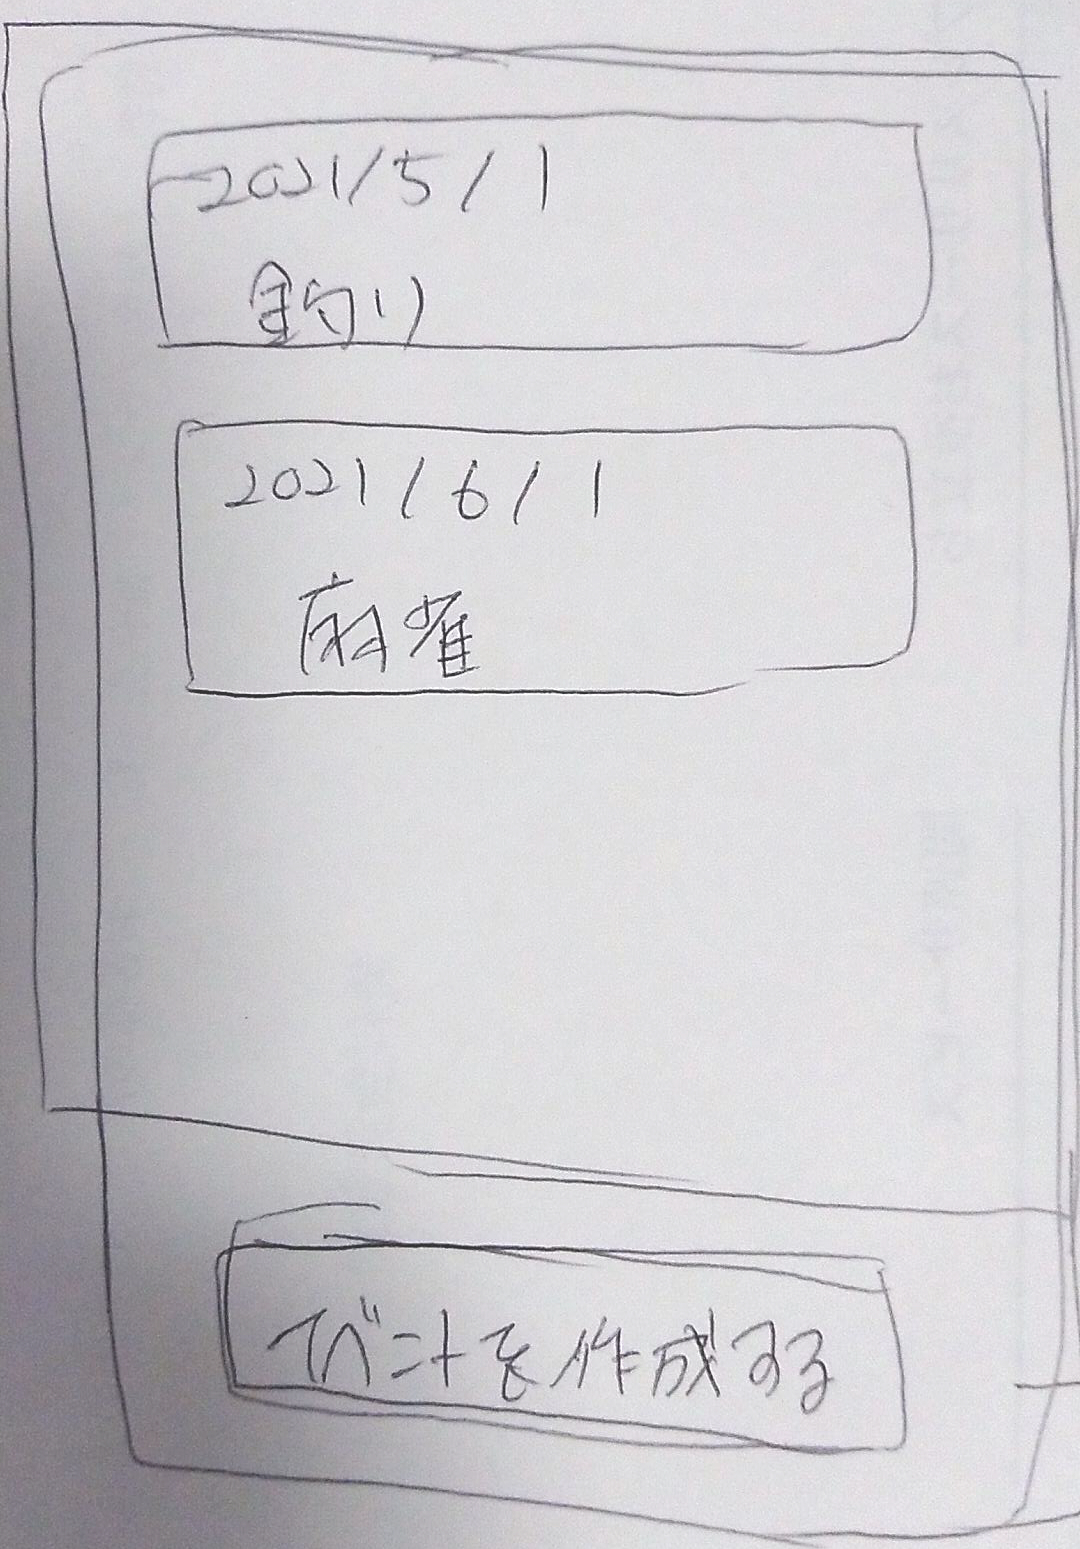 2021/5/1
釣り
2021/6/1
麻雀
イベントを作成する